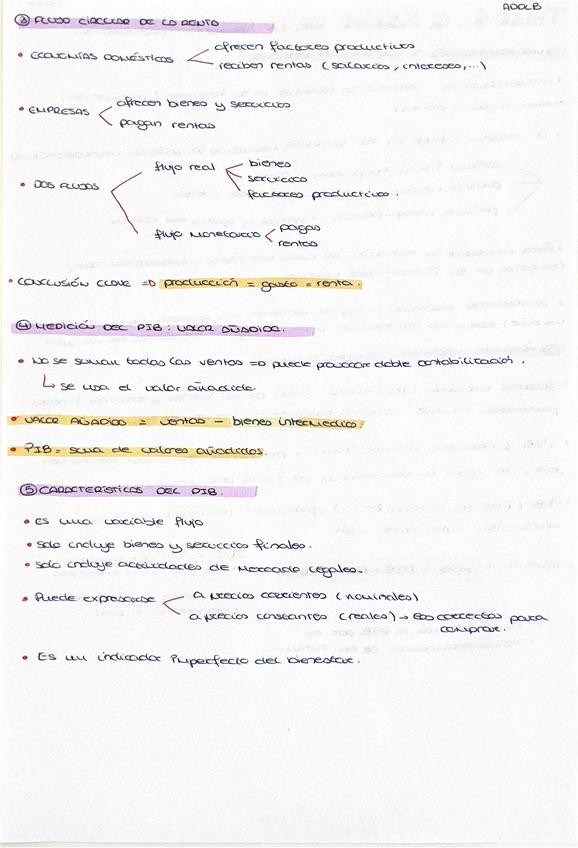 ADOLB
③ FLUJO CIRCULAR DE LA RENTA
• ECONOMÍAS DOMÉSTICAS
ofrecen factores productivos
reciben rentas (salarios, intereses,...)
• EMPRESAS
ofrecen bienes y servicios
pagan rentas
• DOS FLUJOS
flujo real
bienes
servicios
factores productivos.
flujo monetario
pagos
rentas
• CONCLUSIÓN CLAVE => producción = gasto = renta.
④ MEDICIÓN DEL PIB: VALOR AÑADIDO.
• No se suman todas las ventas => puede provocar doble contabilización.
↳ se usa el valor añadido.
• VALOR AÑADIDO = ventas − bienes intermedios.
• PIB = suma de valores añadidos.
⑤ CARACTERÍSTICAS DEL PIB.
• Es una variable flujo
• Solo incluye bienes y servicios finales.
• Solo incluye actividades de mercado legales.
• Puede expresarse
a precios corrientes (nominales)
a precios constantes (reales) → los correctos para
comparar.
• Es un indicador imperfecto del bienestar.